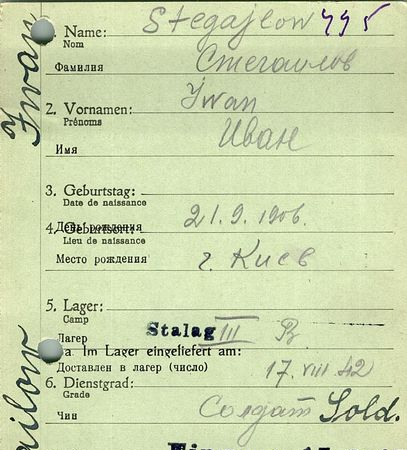 Iwan
1. Name: Stegajlow 495
Nom
Фамилия Стегайлов
2. Vornamen: Iwan
Prénoms
Имя Иван
3. Geburtstag:
Date de naissance
День рождения 21.9.1906.
4. Geburtsort:
Lieu de naissance
Место рождения г. Киев
5. Lager:
Camp
Лагер Stalag III B
a. Im Lager eingeliefert am:
Доставлен в лагер (число) 17.VIII 42
6. Dienstgrad:
Grade
Чин Солдат Sold.